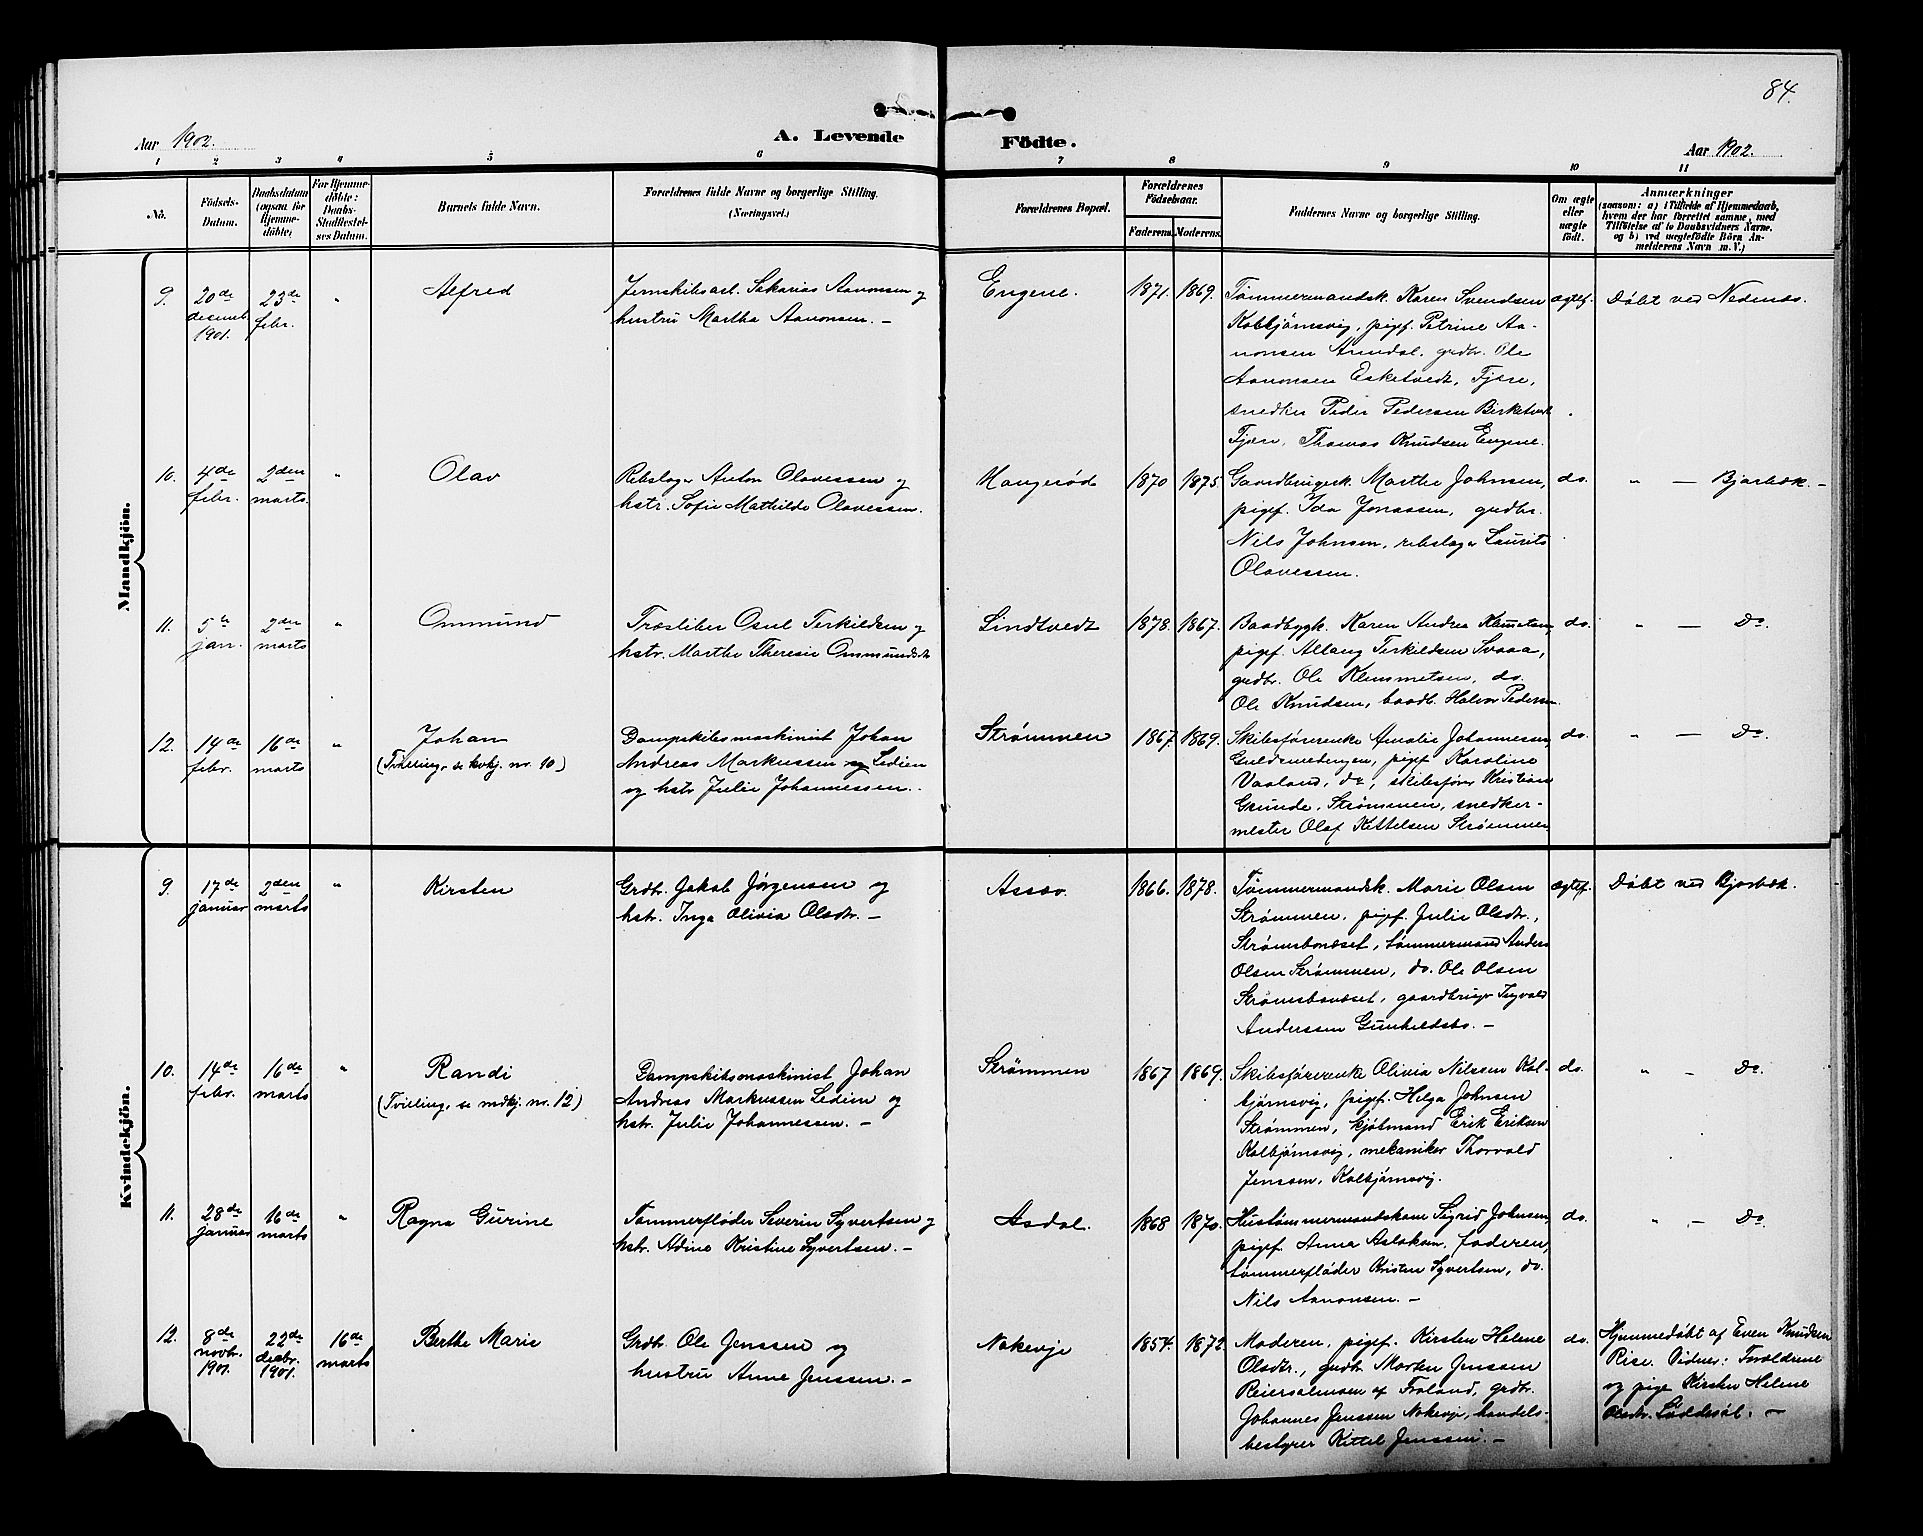 84.
Aar 1902.
A. Levende
Födte.
Aar 1902.
1 2 3 4 5 6 7 8 9 10 11
No.
Födsels-
Datum.
Daabsdatum
(ogsaa for
Hjemme-
döbte)
For Hjemme-
döbte:
Daabs-
Stadfæstel-
ses Datum.
Barnets fulde Navn.
Forældrenes fulde Navne og borgerlige Stilling.
(Næringsvei.)
Forældrenes Bopæl.
Forældrenes
Födselsaar.
Faderens. Moderens.
Faddernes Navne og borgerlige Stilling.
Om ægte
eller
uægte
födt.
Anmærkninger
(saasom: a) i Tilfælde af Hjemmedaab,
hvem der har forrettet samme, med
Tilföielse af to Daabsvidners Navne,
og b) ved uegtefödte Börn An-
melderens Navn m. V.)
Mandkjön.
9.
20de
decemb.
1901.
23de
febr.
"
Alfred
Jernskibsarb. Sakarias Aanonsen og
hustru Martha Aanonsen. —
Engene.
1871. 1869.
Tømmermandsk. Karen Svendsen
Kolbjørnsvig, pigef. Petrine Aa-
nonsen Arendal, grdbr. Ole
Aanonsen Esketvedt, Fjære,
snedker Peder Pedersen Birketvedt
Fjære, Thomas Knudsen Engene.
ægtef.
Døbt ved Nedenæs.
10.
4de
febr.
2den
marts
"
Olav
Rebslager Anton Olavessen og
hstr. Sofie Mathilde Olavessen.
1870 1875
Gaardbrugerk. Marthe Johnsen,
pigef. Ida Jonassen, grdbr.
Nils Johnsen, rebslager Laurits
Olavessen.
do.
" — Bjorbæk. —
11.
5te
jan.
2den
marts
"
Ommund
Træsliber Osul Terkildsen og
hstr. Marthe Theresie Ommundsdr
Lindtvedt
1878. 1867.
Baadbygk. Karen Andrea
pigef. Terkildsen
grdbr. Ole Klemmetsen, do.
Ole Knudsen, baadb. Halvor Pedersen.
do.
" — Do.
12.
14de
febr.
16de
marts
"
Johan
(Tvilling, se kvkj. nr. 10)
Dampskibsmaskinist Johan
Andreas Markussen Ledien
og hstr. Julie Johannessen.
Strømmen
1867. 1869.
Skibsførerenke Amalie Johannesen,
Guldsmedengen, pigef. Karoline
Vaaland, do, skibsfører Kristian
Gsunde, Strømmen, snedker-
mester Olaf Kettelsen Strømmen
do.
" — Do.
Kvindekjön.
9.
17de
januar
2den
marts
"
Kirsten
Grdbr. Jakob Jørgensen og
hstr. Inga Olivia Olsdtr. —
Assæv.
1866. 1878.
Tømmermandsk. Marie Olsen
Strømmen, pigef. Julie Olsdtr.,
Strømsbonæset, tømmermand Anders
Olsen Strømmen, do. Ole Olsen
Strømsbonæset, gaardbruger Ingvald
Anderssen Gunhildsbo. —
ægtef.
Døbt ved Bjorbæk.
10.
14de
febr.
16de
marts
"
Randi
(Tvilling, se mdkj. nr. 12)
Dampskibsmaskinist Johan
Andreas Markussen Ledien og
hstr. Julie Johannessen. —
Strømmen
1867 1869.
Skibsførerenke Olivia Nilsen Kol-
bjørnsvig, pigef. Helga Johnsen
Strømmen, kjøtmand Erik Eriksen
Kolbjørnsvig, mekaniker Thorvald
Jensen, Kolbjørnsvig.
do.
" — Do.
11.
28de
januar
16de
marts
"
Ragna Gurine
Tømmerfløder Severin Syvertsen og
hstr. Adine Kristine Syvertsen. —
Asdal.
1868 1870.
Hustømmermandskone Sigrid Johnsen,
pigef. Anna Aslaksen, faderen,
tømmerfløder Kristen Syvertsen, do.
Nils Aanonsen. —
do.
" — Do.
12.
8de
novbr.
1901.
22de
decbr.
1901.
16de
marts
Berthe Marie
Grdbr. Ole Jenssen og
hustru Anne Jenssen. —
Nakevje
1854. 1872.
Moderen, pigef. Kirsten Helene
Olsdtr., grdbr. Morten Jenssen
Reiersølmoen af Froland, grdbr.
Johannes Jenssen Nakevje, handels-
bestyrer Kittel Jenssen. —
do.
Hjemmedøbt af Even Knudsen
Rise. Vidner: Forældrene
og pige Kirsten Helene
Olsdtr. Løddesøl. —